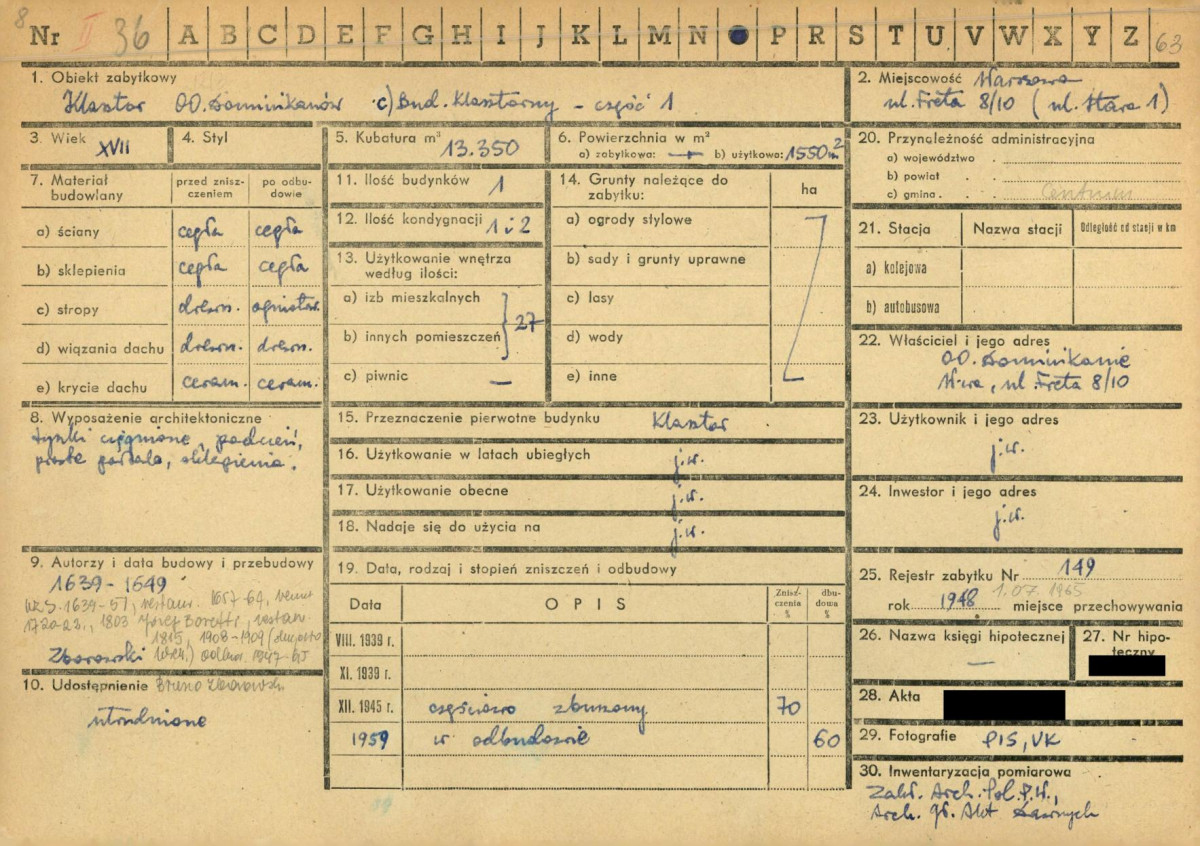 8
Nr II 36 A B C D E F G H I J K L M N P R S T U V W X Y Z 63
1. Obiekt zabytkowy
Klasztor OO. Dominikanów c) Bud. Klasztorny – część 1
2. Miejscowość Warszawa
ul. Freta 8/10 (ul. Stara 1)
3. Wiek XVII
4. Styl
5. Kubatura m³ 13.350
6. Powierzchnia w m²
a) zabytkowa: — b) użytkowa: 1550 m²
7. Materiał budowlany
przed zniszczeniem
po odbudowie
a) ściany cegła cegła
b) sklepienia cegła cegła
c) stropy drewn. ogniotrw.
d) wiązania dachu drewn. drewn.
e) krycie dachu ceram. ceram.
8. Wyposażenie architektoniczne
tynki ciągnione, podcień,
proste portale, sklepienia.
9. Autorzy i data budowy i przebudowy
1639 - 1649
WZS. 1639-51, restaur. 1657-64, remont
1720-23., 1803 Józef Boretti, restaur.
1815, 1908-1909
Zborowski odbud. 1947-65
10. Udostępnienie Bruno Zborowski
utrudnione
11. Ilość budynków 1
12. Ilość kondygnacji 1 i 2
13. Użytkowanie wnętrza
według ilości:
a) izb mieszkalnych
b) innych pomieszczeń
27
c) piwnic —
14. Grunty należące do
zabytku:
ha
a) ogrody stylowe
b) sady i grunty uprawne
c) lasy
d) wody
e) inne
15. Przeznaczenie pierwotne budynku Klasztor
16. Użytkowanie w latach ubiegłych j.w.
17. Użytkowanie obecne j.w.
18. Nadaje się do użycia na j.w.
19. Data, rodzaj i stopień zniszczeń i odbudowy
Data OPIS Zniszczenia % dbudowa %
VIII. 1939 r.
XI. 1939 r.
XII. 1945 r. częściowo zburzony 70
1959 w odbudowie 60
20. Przynależność administracyjna
a) województwo
b) powiat
c) gmina Centrum
21. Stacja Nazwa stacji Odległość od stacji w km
a) kolejowa
b) autobusowa
22. Właściciel i jego adres
OO. Dominikanie
W-wa, ul. Freta 8/10
23. Użytkownik i jego adres
j.w.
24. Inwestor i jego adres
j.w.
25. Rejestr zabytku Nr 149
1.07.1965
rok 1948 miejsce przechowywania
26. Nazwa księgi hipotecznej
—
27. Nr hipoteczny
28. Akta
29. Fotografie PIS, VK
30. Inwentaryzacja pomiarowa
Zakł. Arch. Pol. P.W.,
Arch. Gł. Akt Dawnych